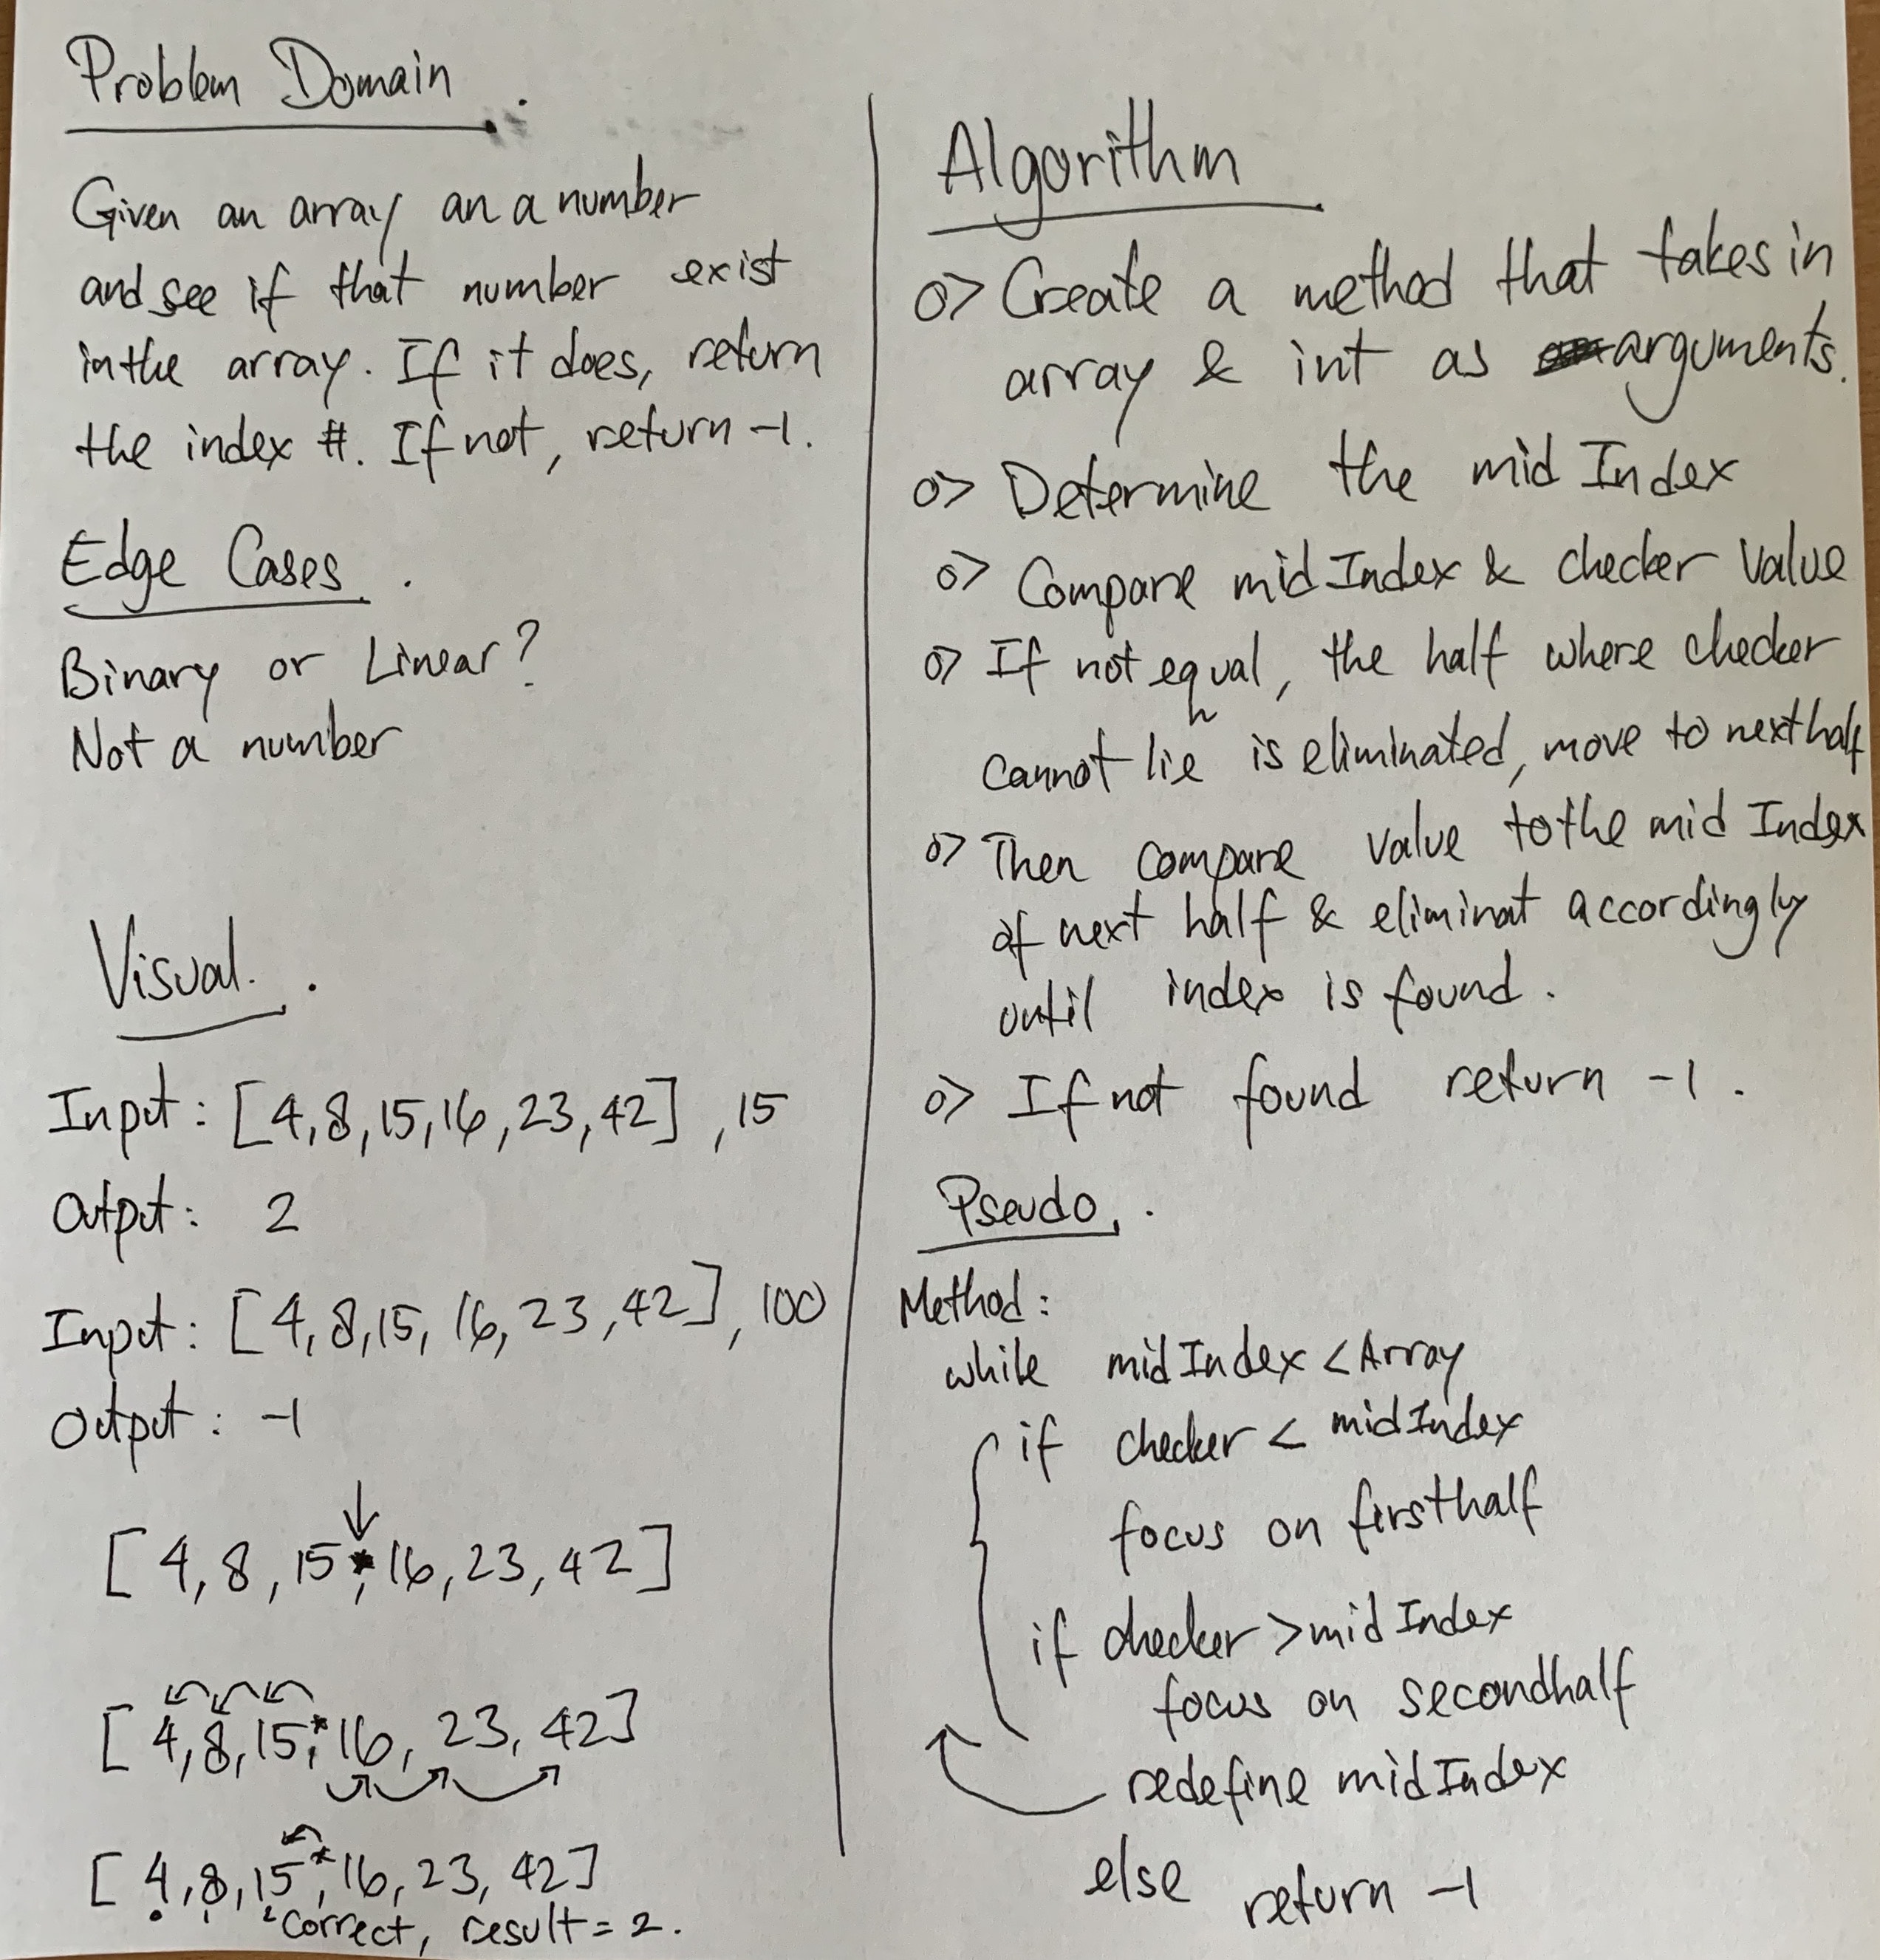 Problem Domain
Given an array an a number
and see if that number exist
in the array. If it does, return
the index #. If not, return -1.
Edge Cases.
Binary or Linear?
Not a number
Visual.
Input: [4,8,15,16,23,42], 15
Output: 2
Input: [4,8,15,16,23,42], 100
Output: -1
[4,8,15,16,23,42]
[4,8,15,*16,23,42]
[4,8,15,*16,23,42]
0 1 2 correct, result = 2.
Algorithm
o> Create a method that takes in
array & int as arguments.
o> Determine the mid Index
o> Compare midIndex & checker value
o> If not equal, the half where checker
cannot lie is eliminated, move to next half
o> Then compare value to the mid Index
of next half & eliminat accordingly
until index is found.
o> If not found return -1.
Pseudo.
Method:
while midIndex < Array
if checker < midIndex
focus on firsthalf
if checker > midIndex
focus on secondhalf
redefine midIndex
else return -1